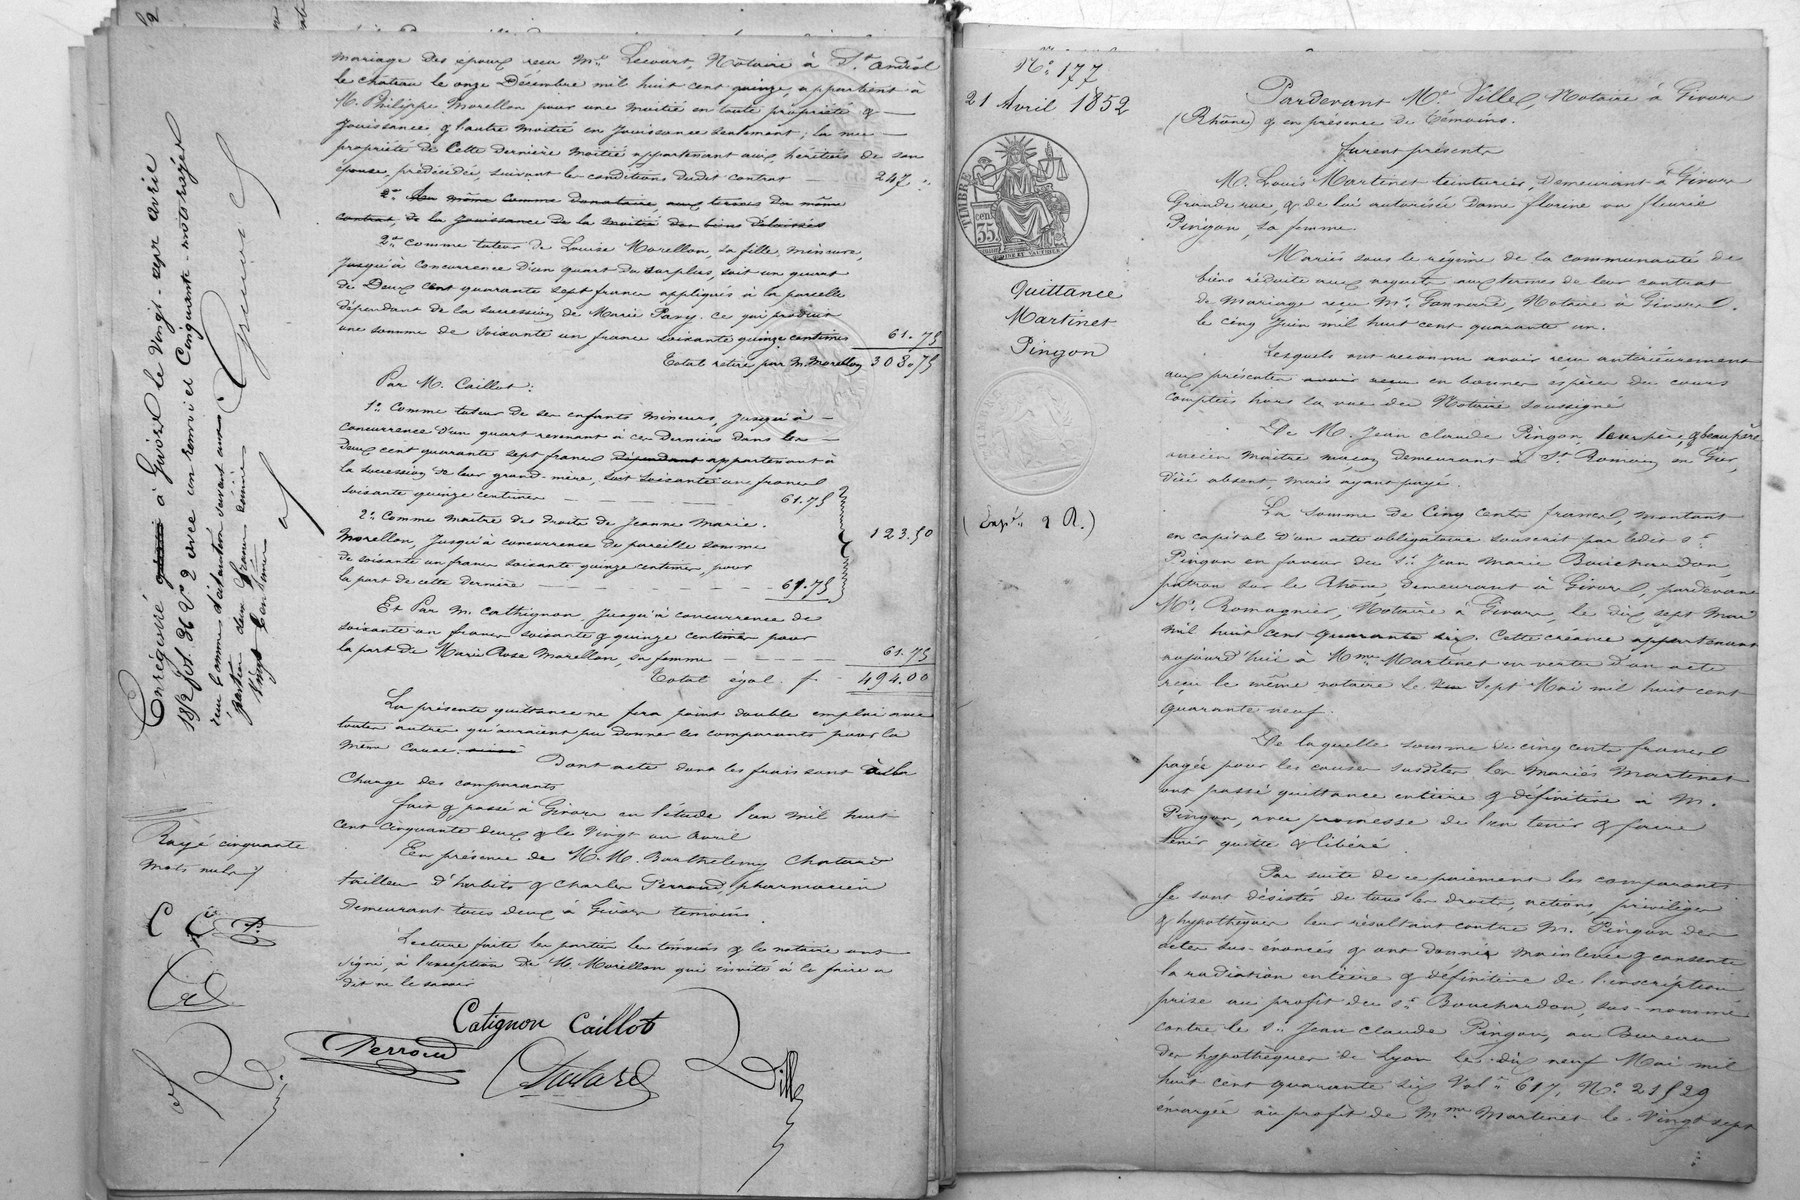 mariage des époux reçu Me Lecourt, Notaire à St andéol
le chateau le onze Décembre mil huit cent quinze, appartient à
M. Philippe Morellon pour une moitié en toute propriété &
jouissance & l'autre moitié en jouissance seulement; la nue
propriété de cette dernière moitié appartenant aux héritiers de son
épouse prédécédée, suivant les conditions dudit contrat 247 "
2o Au même comme donataire aux termes du même
contrat, de la jouissance de la moitié des biens délaissés
2o Comme tuteur de Louise Morellon, sa fille, mineure,
jusqu'à concurrence d'un quart du surplus, soit un quart
de Deux cent quarante sept francs appliqués à la parcelle
dépendant de la succession de Marie Pavy. ce qui produit
une somme de soixante un francs soixante quinze centimes 61.75
Total retiré par M. Morellon 308.75
Par M. Caillot:
1o Comme tuteur de ses enfants mineurs, jusqu'à
concurrence d'un quart revenant à ces derniers dans les
deux cent quarante sept francs dépendant appartenant à
la succession de leur grand-mère, soit soixante un francs
soixante quinze centimes 61.75
2o Comme maître des droits de Jeanne Marie
Morellon, jusqu'à concurrence de pareille somme 123.50
de soixante un francs soixante quinze centimes, pour
la part de cette dernière 61.75
Et Par M. Cathignon jusqu'à concurrence de
soixante un francs soixante & quinze centimes pour
la part de Marie Rose Morellon, sa femme 61.75
Total égal f 494.00
La présente quittance ne fera point double emploi avec
toutes autres qu'auraient pu donner les comparants pour la
même cause.
Dont acte dont les frais sont à la
charge des comparants
fait & passé à Givors en l'étude l'an mil huit
cent cinquante deux & le vingt un avril
En présence de M.M. Barthelemy Chatard
tailleur d'habits & Charles Perroud, pharmacien
demeurant tous deux à Givors témoins
Lecture faite les parties les témoins & le notaire ont
signé, à l'exception de M. Morellon qui invité à le faire a
dit ne le savoir
Catignon Caillot
Perroud
Chatard
Ville
Enregistré à Givors le vingt-sept avril
1852 fol. 36 Vo 2 avec un renvoi et Cinquante mots rayés
Rayé cinquante
mots nuls
No 177
21 Avril 1852
TIMBRE
35 cen
Quittance
Martinet
Pingon
(Exp. 2 R.)
Pardevant Me Ville, Notaire à Givors
(Rhône) & en présence de témoins.
furent présents
M. Louis Martinet teinturier, demeurant à Givors
Grande rue, & de lui autorisée Dame florine ou fleurie
Pingon, sa femme.
Mariés sous le régime de la communauté de
biens réduite aux acquets aux termes de leur contrat
de mariage reçu Me Gonnard, Notaire à Givors
le cinq juin mil huit cent quarante un.
Lesquels ont reconnu avoir reçu antérieurement
aux présentes avoir reçu en bonnes espèces du cours
comptées hors la vue du Notaire soussigné
De M. Jean claude Pingon leur père & beau père
ancien maître maçon demeurant à St Romain en Gier,
d'ici absent, mais ayant payé.
La somme de Cinq cents francs, montant
en capital d'un acte obligatoire souscrit par ledit sr
Pingon en faveur du sr Jean Marie Bouchardon,
patron sur le Rhône, demeurant à Givors, pardevant
Me Romagnier, Notaire à Givors, le dix sept Mai
mil huit cent quarante six. Cette créance appartenant
aujourd'hui à Mme Martinet en vertu d'un acte
reçu le même notaire le Sept Mai mil huit cent
quarante neuf.
De laquelle somme de cinq cents francs
payée pour les causes susdites les mariés Martinet
ont passé quittance entière & définitive à M.
Pingon, avec promesse de l'en tenir & faire
tenir quitte & libéré.
Par suite de ce paiement les comparants
se sont désistés de tous les droits, actions, privilèges
& hypothèques leur résultant contre M. Pingon des
actes sus-énoncés & ont donné mainlevée & consenti
la radiation entière & définitive de l'inscription
prise au profit du sr Bouchardon, sus-nommé
contre le sr Jean Claude Pingon, au Bureau
des hypothèques de Lyon le dix neuf Mai mil
huit cent quarante six Vol. 617, No 21529
émargée au profit de Mme Martinet le vingt sept